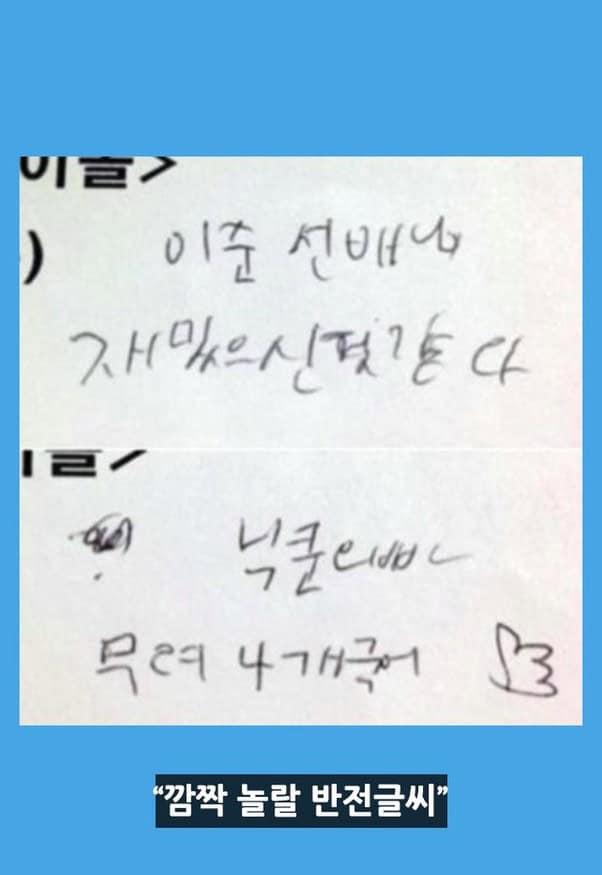 이준 선배님
재밌으신 것 같다
닉쿤오빠
무려 4개국어
“깜짝 놀랄 반전글씨”